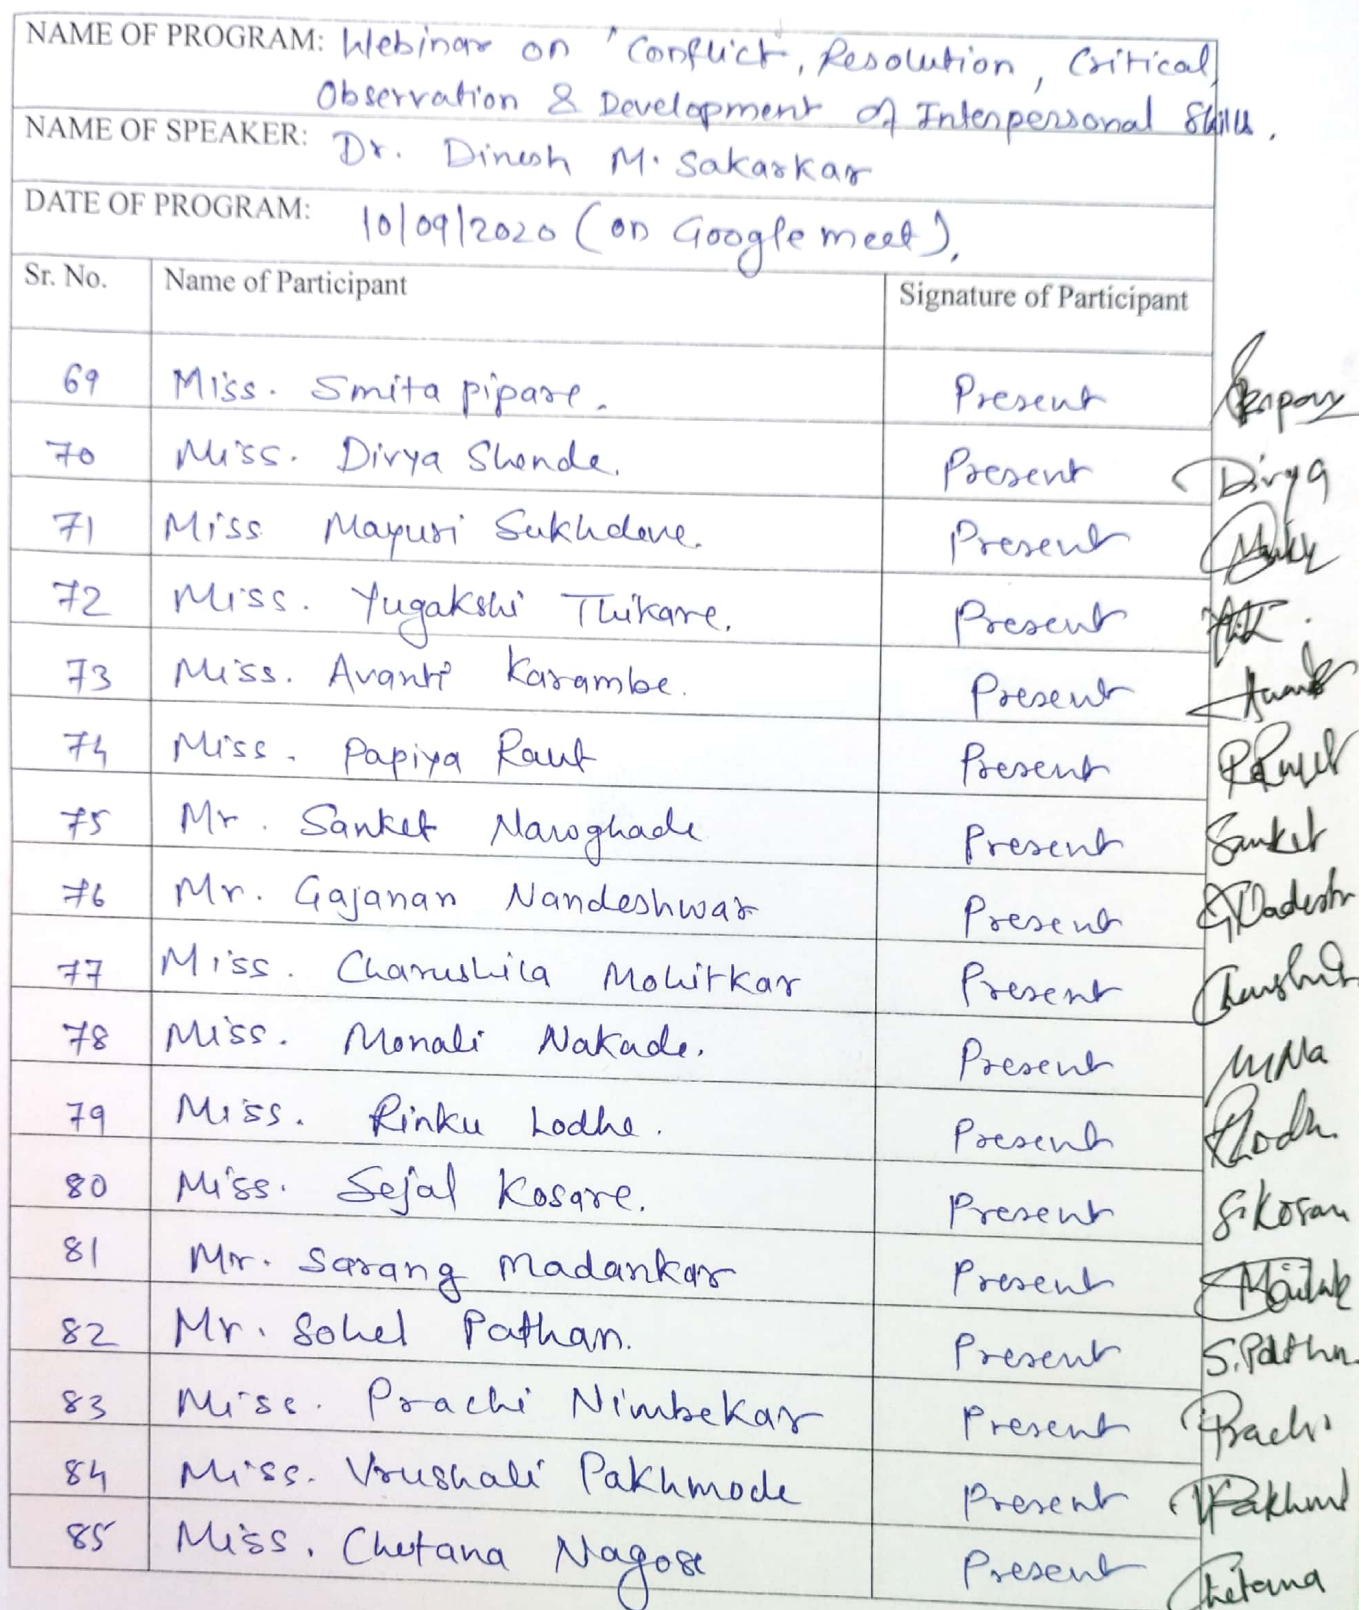 NAME OF PROGRAM: Webinar on "Conflict, Resolution, Critical
Observation & Development of Interpersonal Skills.
NAME OF SPEAKER: Dr. Dinesh M. Sakarkar
DATE OF PROGRAM: 10/09/2020 (on Google meet).
Sr. No. Name of Participant Signature of Participant
69 Miss. Smita pipare. Present
70 Miss. Divya Shende. Present Divya
71 Miss Mayuri Sukhdeve. Present
72 Miss. Yugakshi Thikare. Present
73 Miss. Avanti Karambe. Present
74 Miss. Papiya Raut Present
75 Mr. Sanket Naroghade Present Sanket
76 Mr. Gajanan Nandeshwar Present
77 Miss. Charushila Mohitkar Present
78 Miss. Monali Nakade. Present
79 Miss. Rinku Lodhe. Present
80 Miss. Sejal Kosare. Present
81 Mr. Sarang Madankar Present
82 Mr. Sohel Pathan. Present
83 Miss. Prachi Nimbekar Present Prachi
84 Miss. Vrushali Pakhmode Present
85 Miss. Chetana Nagose Present Chetana